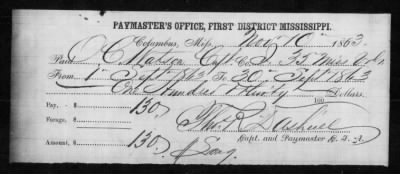 PAYMASTER'S OFFICE, FIRST DISTRICT MISSISSIPPI.
Columbus, Miss. Nov 10 1863.
Paid O C Capt Co 35 Miss Vols
From 1st Sept 1863 To 30th Sept 1863
One Hundred & thirty 100 Dollars.
Pay, $ 130
Forage, $
Amount, $ 130
Capt. and Paymaster C. S. A.